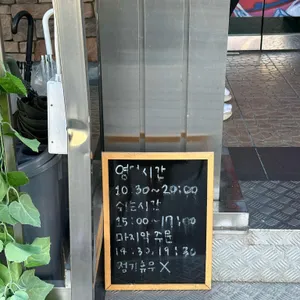 영업시간
10:30~20:00
쉬는시간
15:00~17:00
마지막 주문
14:30, 19:30
정기휴무 X